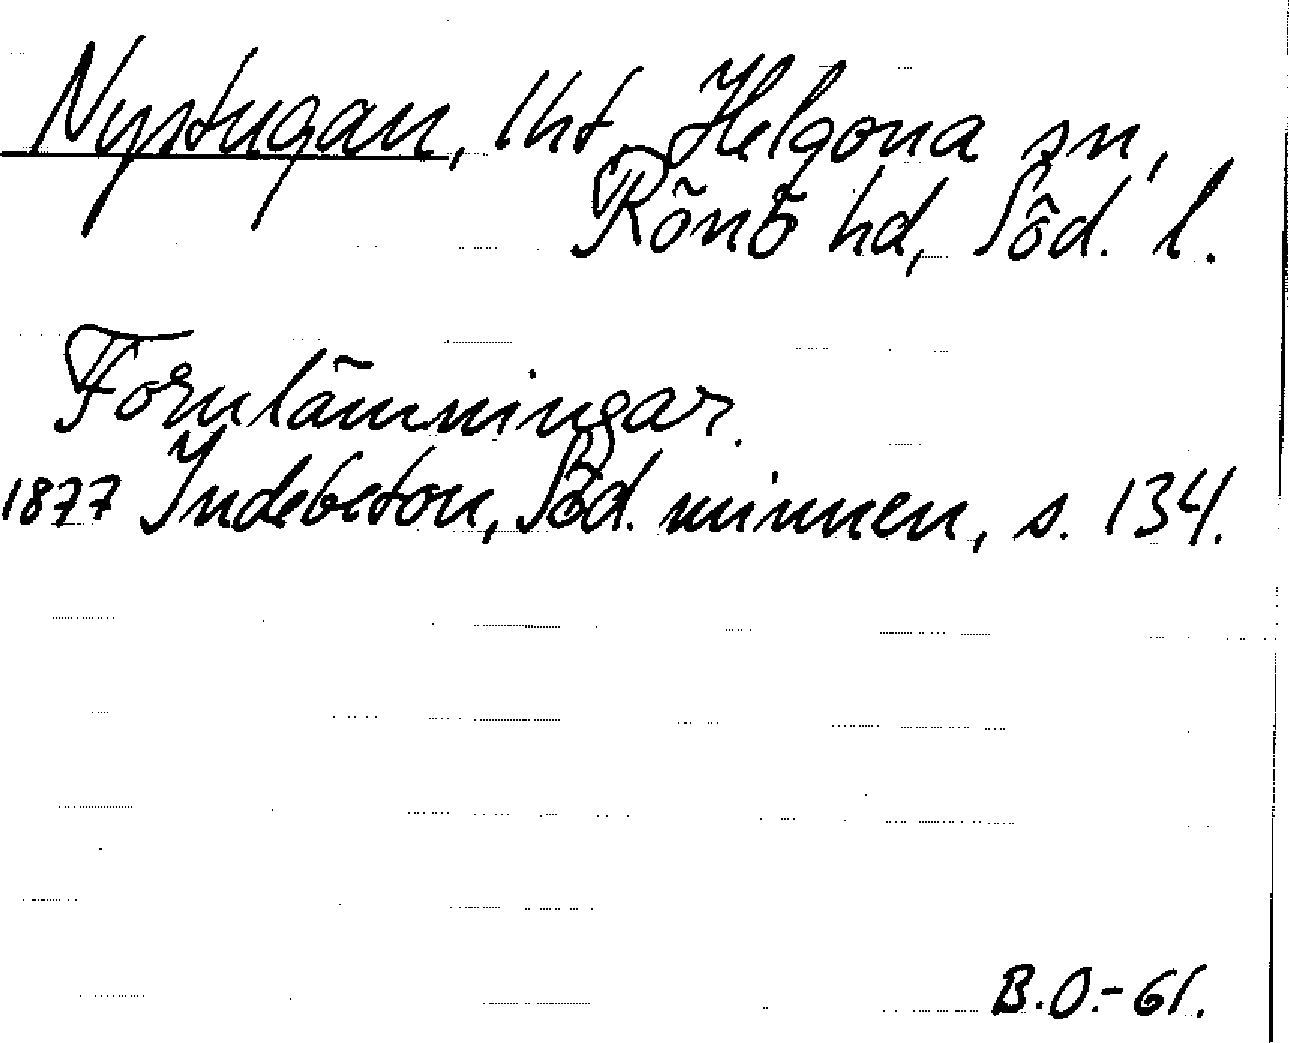 Nystugan, lht Helgona sn,
Rönö hd, Söd. l.
Fornlämningar.
1877 Indebetou, Söd. minnen, s. 134.
B.O.-61.